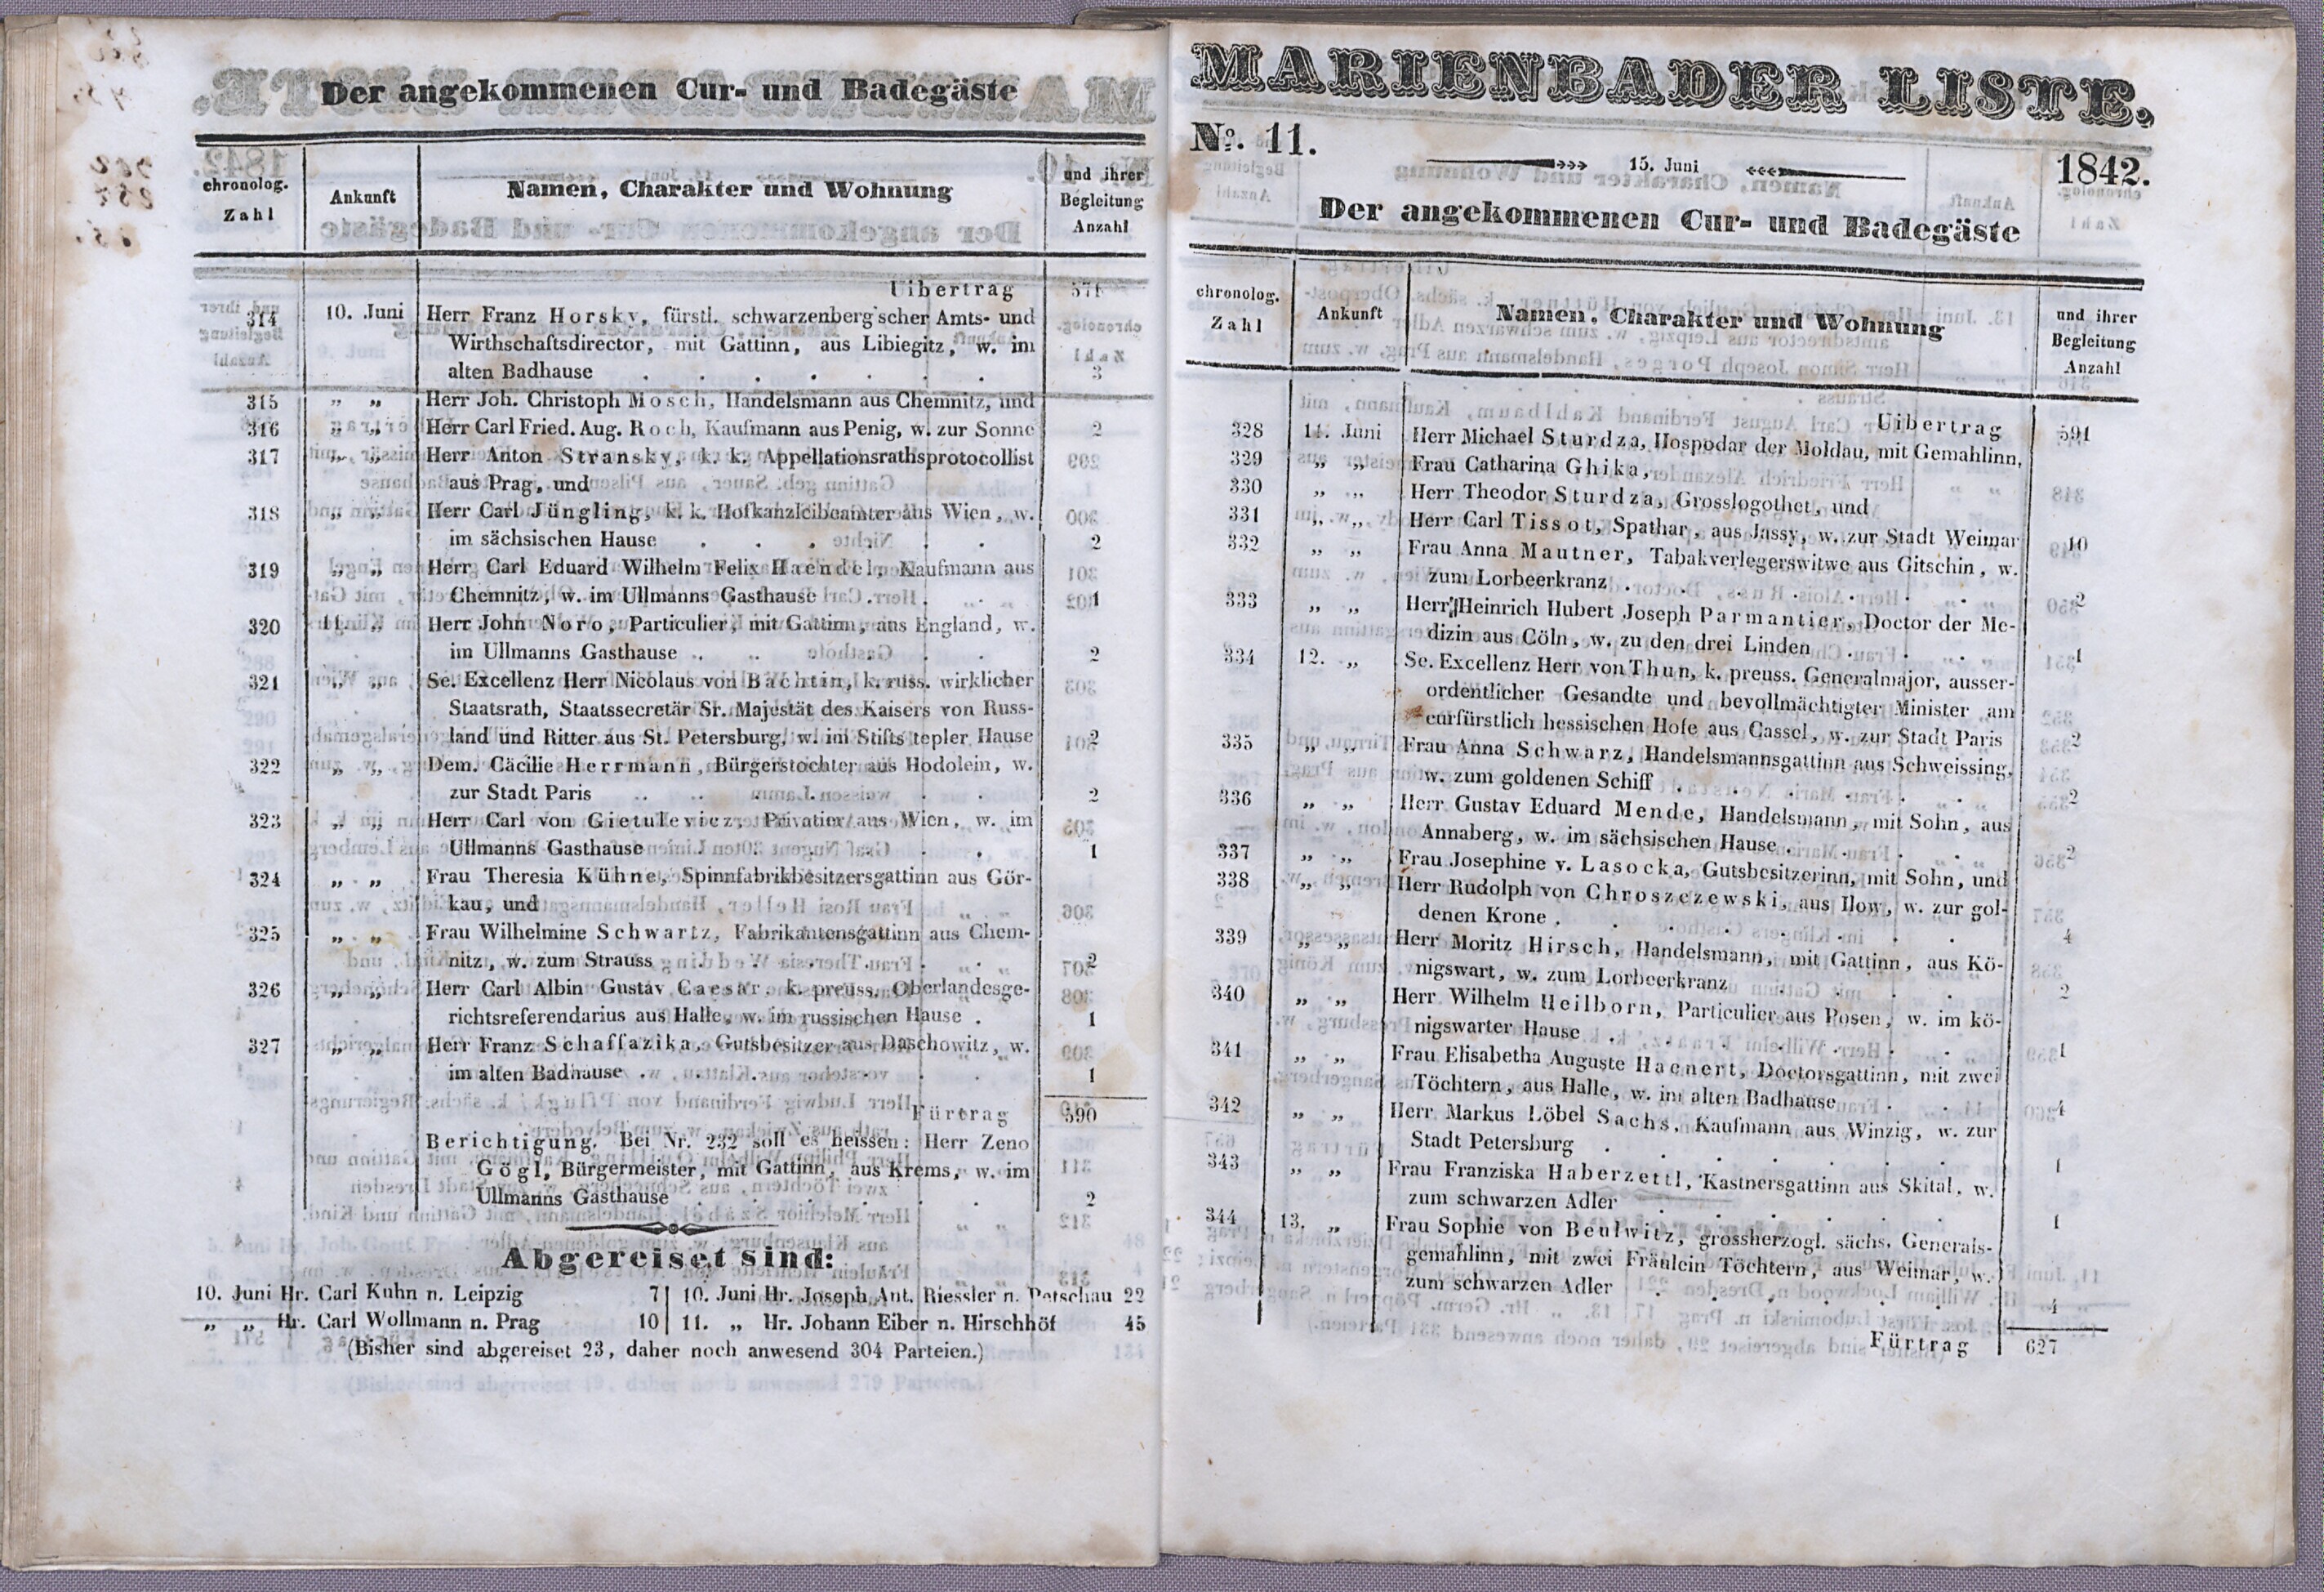 Der angekommenen Cur- und Badegäste
chronolog. Zahl
Ankunft
Namen, Charakter und Wohnung
und ihrer Begleitung Anzahl
Uibertrag 571
314 10. Juni Herr Franz Horsky, fürstl. schwarzenberg'scher Amts- und
Wirthschaftsdirector, mit Gattinn, aus Libiegitz, w. im
alten Badhause . . . . . . . 3
315 „ „ Herr Joh. Christoph Mosch, Handelsmann aus Chemnitz, und
316 „ „ Herr Carl Fried. Aug. Roch, Kaufmann aus Penig, w. zur Sonne 2
317 „ „ Herr Anton Stransky, k. k. Appellationsrathsprotocollist
aus Prag, und
318 „ „ Herr Carl Jüngling, k. k. Hofkanzleibeamter aus Wien, w.
im sächsischen Hause . . . . . . 2
319 „ „ Herr Carl Eduard Wilhelm Felix Haendel, Kaufmann aus
Chemnitz, w. im Ullmanns Gasthause . . . 1
320 11. „ Herr John Noro, Particulier, mit Gattinn, aus England, w.
im Ullmanns Gasthause . . . . . 2
321 „ „ Se. Excellenz Herr Nicolaus von Bachtin, k. russ. wirklicher
Staatsrath, Staatssecretär Sr. Majestät des Kaisers von Russ-
land und Ritter aus St. Petersburg, w. im Stifts tepler Hause 2
322 „ „ Dem. Cäcilie Herrmann, Bürgerstochter aus Hodolein, w.
zur Stadt Paris . . . . . . 2
323 „ „ Herr Carl von Gietulevicz, Privatier aus Wien, w. im
Ullmanns Gasthause . . . . . . 1
324 „ „ Frau Theresia Kühne, Spinnfabrikbesitzersgattinn aus Gör-
kau, und
325 „ „ Frau Wilhelmine Schwartz, Fabrikantensgattinn aus Chem-
nitz, w. zum Strauss . . . . . . 2
326 „ „ Herr Carl Albin Gustav Caesar, k. preuss. Oberlandesge-
richtsreferendarius aus Halle, w. im russischen Hause . 1
327 „ „ Herr Franz Schaffazika, Gutsbesitzer aus Daschowitz, w.
im alten Badhause . . . . . . 1
Fürtrag 590
Berichtigung. Bei Nr. 232 soll es heissen: Herr Zeno
Gögl, Bürgermeister, mit Gattinn, aus Krems, w. im
Ullmanns Gasthause . . . . . 2
Abgereiset sind:
10. Juni Hr. Carl Kuhn n. Leipzig 7 | 10. Juni Hr. Joseph Ant. Riessler n. Petschau 22
„ „ Hr. Carl Wollmann n. Prag 10 | 11. „ Hr. Johann Eiber n. Hirschhöf 45
(Bisher sind abgereiset 23, daher noch anwesend 304 Parteien.)
MARIENBADER LISTE.
No. 11.
15. Juni
1842.
Der angekommenen Cur- und Badegäste
chronolog. Zahl
Ankunft
Namen, Charakter und Wohnung
und ihrer Begleitung Anzahl
Uibertrag 591
328 11. Juni Herr Michael Sturdza, Hospodar der Moldau, mit Gemahlinn,
329 „ „ Frau Catharina Ghika,
330 „ „ Herr Theodor Sturdza, Grosslogothet, und
331 „ „ Herr Carl Tissot, Spathar, aus Jassy, w. zur Stadt Weimar 10
332 „ „ Frau Anna Mautner, Tabakverlegerswitwe aus Gitschin, w.
zum Lorbeerkranz . . . . . . 2
333 „ „ Herr Heinrich Hubert Joseph Parmantier, Doctor der Me-
dizin aus Cöln, w. zu den drei Linden . . . 1
334 12. „ Se. Excellenz Herr von Thun, k. preuss. Generalmajor, ausser-
ordentlicher Gesandte und bevollmächtigter Minister am
curfürstlich hessischen Hofe aus Cassel, w. zur Stadt Paris 2
335 „ „ Frau Anna Schwarz, Handelsmannsgattinn aus Schweissing,
w. zum goldenen Schiff . . . . . 2
336 „ „ Herr Gustav Eduard Mende, Handelsmann, mit Sohn, aus
Annaberg, w. im sächsischen Hause . . . . 2
337 „ „ Frau Josephine v. Lasocka, Gutsbesitzerinn, mit Sohn, und
338 „ „ Herr Rudolph von Chroszczewski, aus Ilow, w. zur gol-
denen Krone . . . . . . . 4
339 „ „ Herr Moritz Hirsch, Handelsmann, mit Gattinn, aus Kö-
nigswart, w. zum Lorbeerkranz . . . . 2
340 „ „ Herr Wilhelm Heilborn, Particulier aus Posen, w. im kö-
nigswarter Hause . . . . . . 1
341 „ „ Frau Elisabetha Auguste Haenert, Doctorsgattinn, mit zwei
Töchtern, aus Halle, w. im alten Badhause . . . 4
342 „ „ Herr Markus Löbel Sachs, Kaufmann aus Winzig, w. zur
Stadt Petersburg . . . . . . 1
343 „ „ Frau Franziska Haberzettl, Kastnersgattinn aus Skital, w.
zum schwarzen Adler . . . . . 1
344 13. „ Frau Sophie von Beulwitz, grossherzogl. sächs. Generals-
gemahlinn, mit zwei Fräulein Töchtern, aus Weimar, w.
zum schwarzen Adler . . . . . . 4
Fürtrag 627